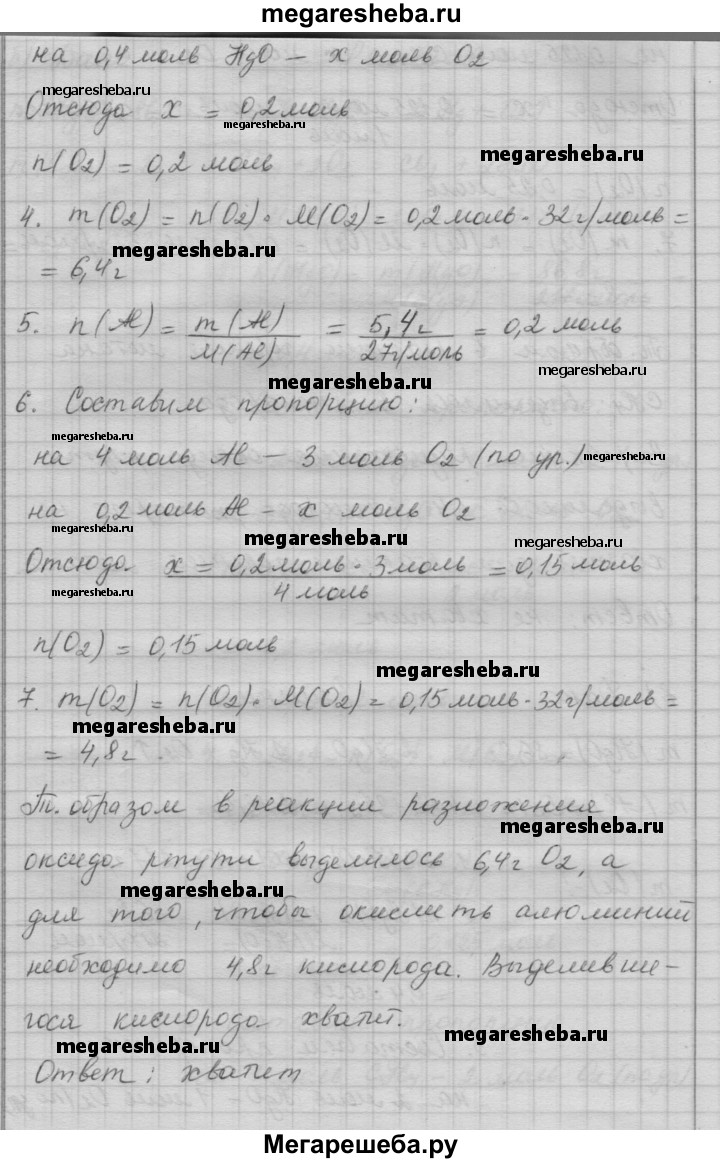 megaresheba.ru
на 0,4 моль HgO — x моль O2
megaresheba.ru
Отсюда x = 0,2 моль
megaresheba.ru
n(O2) = 0,2 моль
megaresheba.ru
4. m(O2) = n(O2) · M(O2) = 0,2 моль · 32 г/моль =
megaresheba.ru
= 6,4 г
5. n(Al) = m(Al) / M(Al) = 5,4 г / 27 г/моль = 0,2 моль
megaresheba.ru
megaresheba.ru
6. Составим пропорцию:
megaresheba.ru
на 4 моль Al — 3 моль O2 (по ур.)
megaresheba.ru
на 0,2 моль Al — x моль O2
megaresheba.ru
megaresheba.ru
megaresheba.ru
Отсюда x = 0,2 моль · 3 моль / 4 моль = 0,15 моль
megaresheba.ru
n(O2) = 0,15 моль
megaresheba.ru
7. m(O2) = n(O2) · M(O2) = 0,15 моль · 32 г/моль =
megaresheba.ru
= 4,8 г.
Т. образом в реакции разложения
megaresheba.ru
оксида ртути выделилось 6,4 г O2, а
megaresheba.ru
для того, чтобы окислить алюминий
необходимо 4,8 г кислорода. Выделивше-
гося кислорода хватит.
megaresheba.ru
megaresheba.ru
Ответ: хватит
Мегарешеба.ру